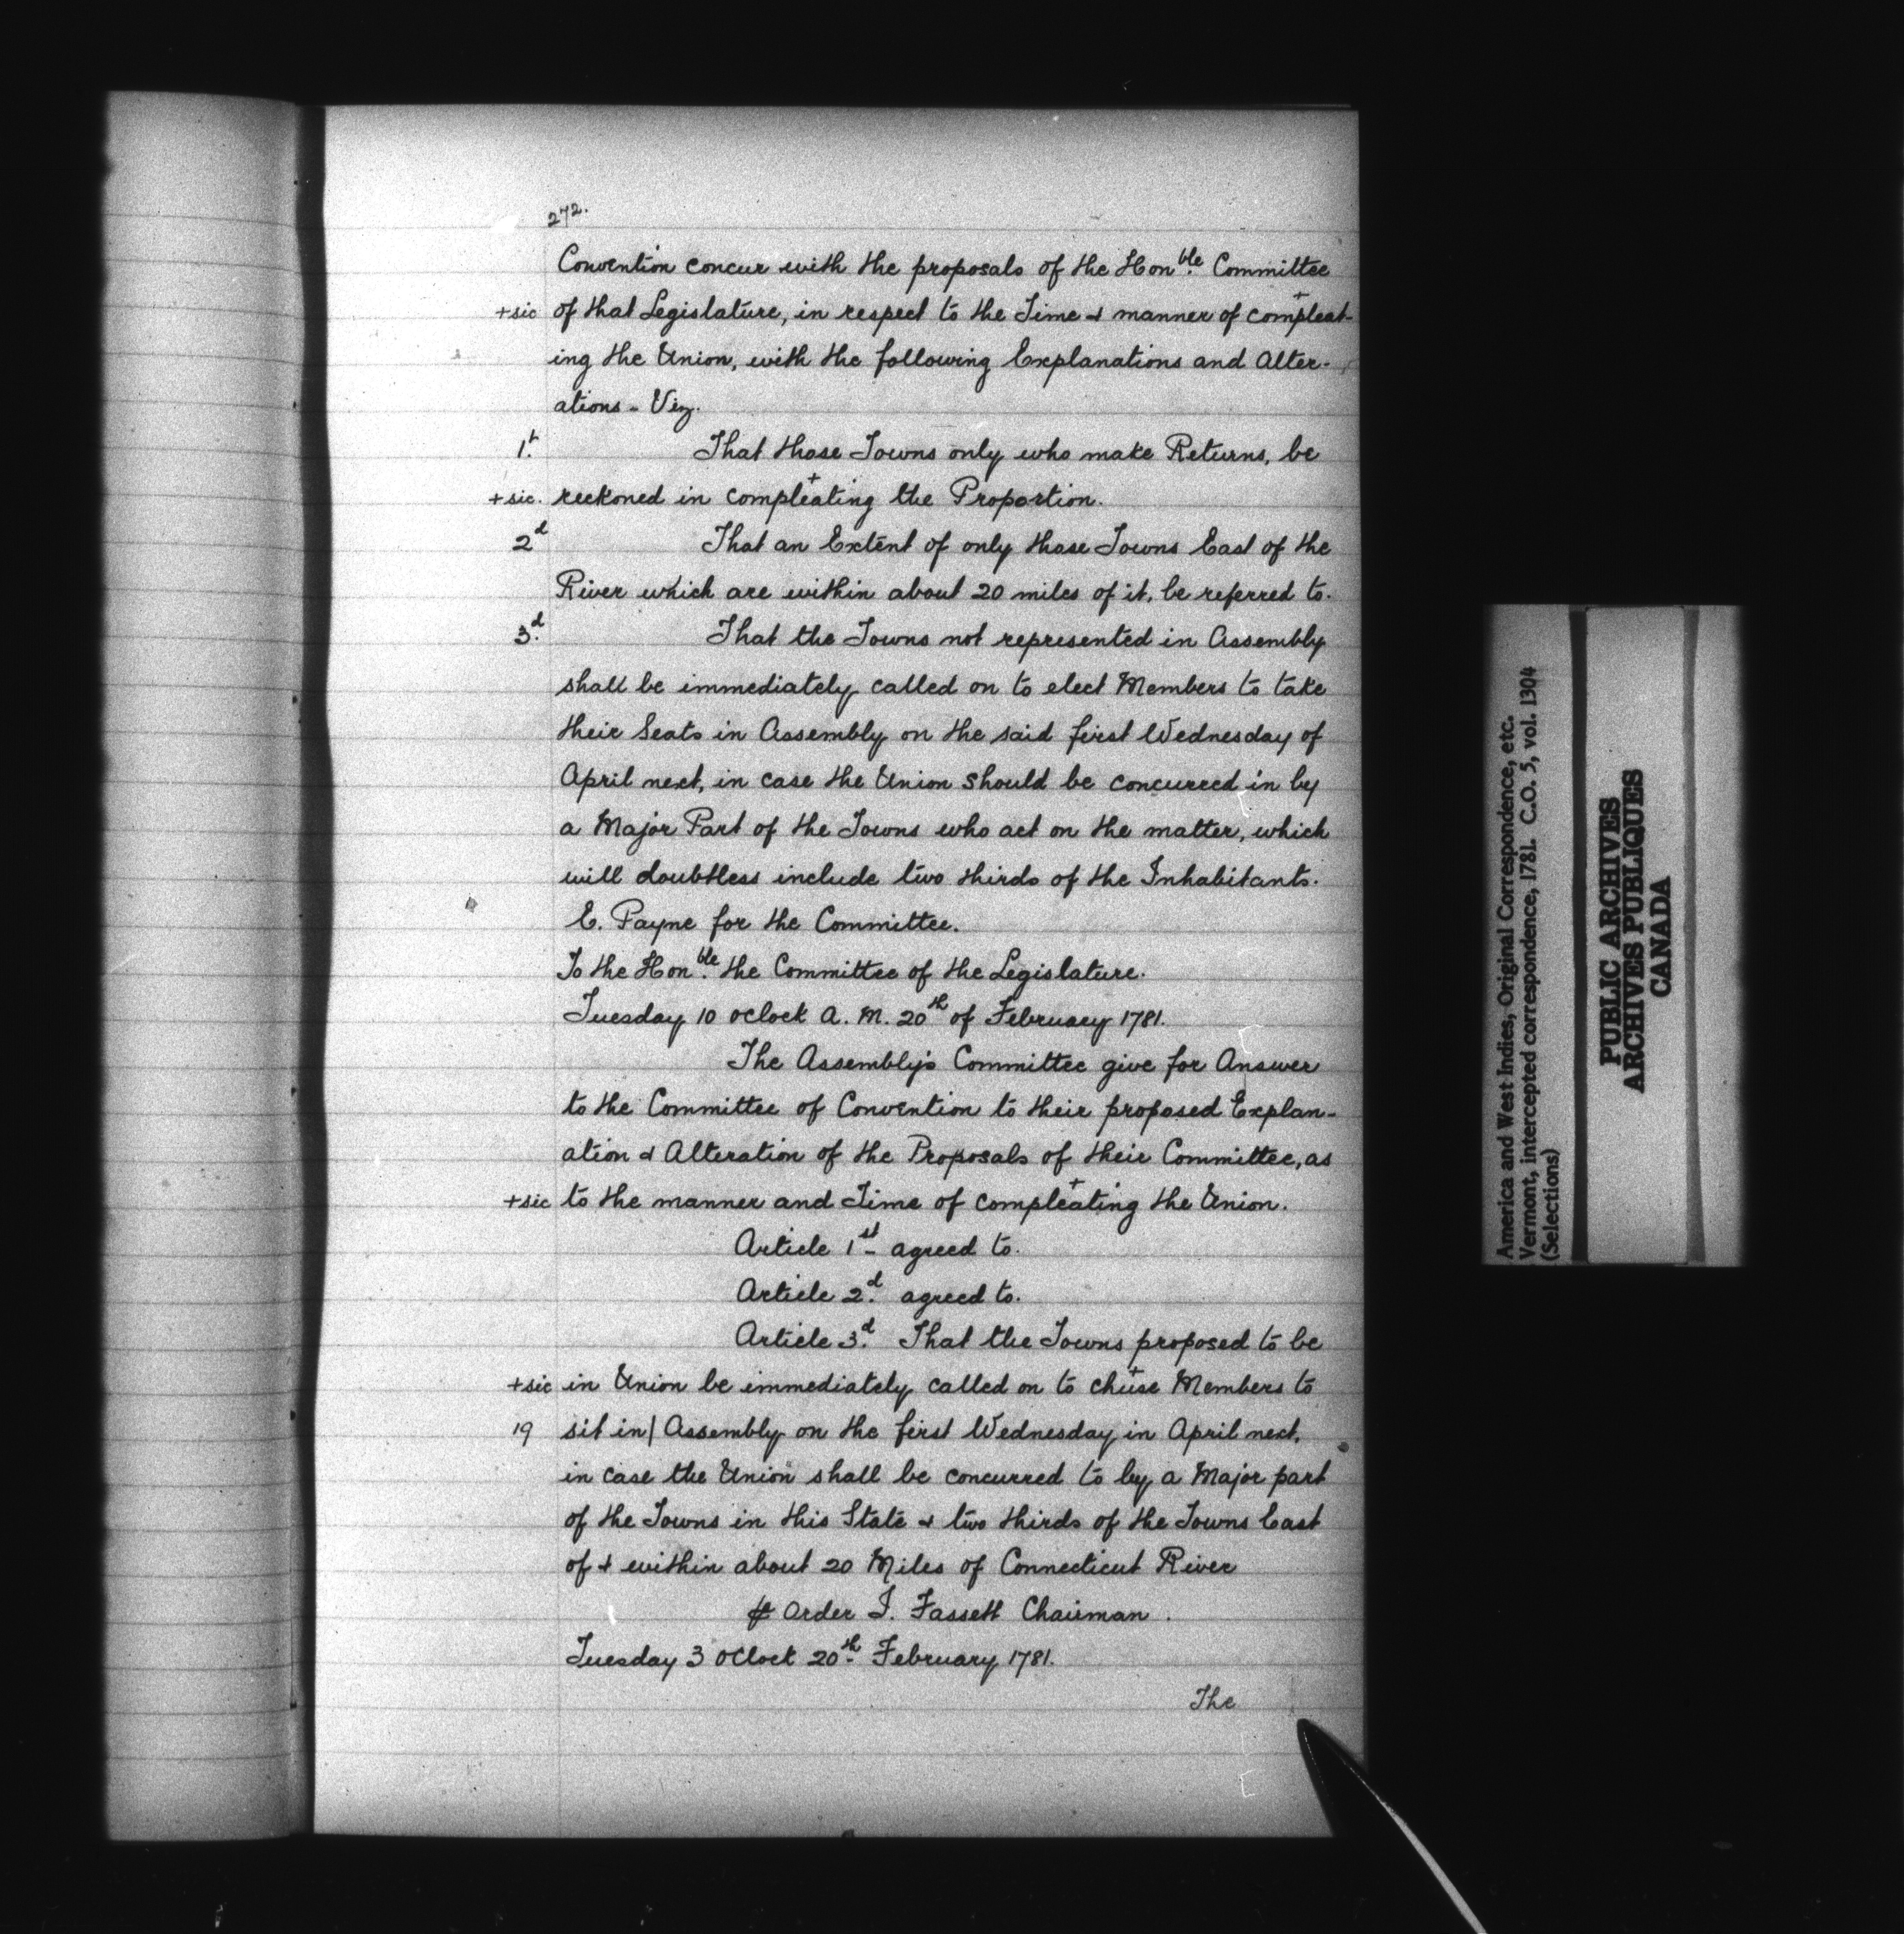 272.
Convention concur with the proposals of the Hon.ble Committee
+sic of that Legislature, in respect to the Time & manner of compleat-
ing the Union, with the following Explanations and Alter-
ations - Viz.
1.t That those Towns only who make Returns, be
+sic. reckoned in compleating the Proportion.
2d That an Extent of only those Towns East of the
River which are within about 20 miles of it, be referred to.
3.d That the Towns not represented in Assembly
shall be immediately called on to elect Members to take
their Seats in Assembly on the said first Wednesday of
April next, in case the Union should be concurred in by
a Major Part of the Towns who act on the matter, which
will doubtless include two thirds of the Inhabitants.
E. Payne for the Committee.
To the Hon.ble the Committee of the Legislature.
Tuesday 10 oClock A. M. 20th of February 1781.
The Assembly's Committee give for Answer
to the Committee of Convention to their proposed Explan-
ation & Alteration of the Proposals of their Committee, as
+sic to the manner and Time of compleating the Union.
Article 1st- agreed to.
Article 2.d agreed to.
Article 3.d That the Towns proposed to be
+sic in Union be immediately called on to chuse Members to
19 sit in/ Assembly on the first Wednesday in April next,
in case the Union shall be concurred to by a Major part
of the Towns in this State & two thirds of the Towns East
of & within about 20 Miles of Connecticut River
⅌ Order I. Fassett Chairman.
Tuesday 3 oClock 20th- February 1781.
The
America and West Indies, Original Correspondence, etc.
Vermont, intercepted correspondence, 1781. C.O. 5, vol. 1304
(Selections)
PUBLIC ARCHIVES
ARCHIVES PUBLIQUES
CANADA